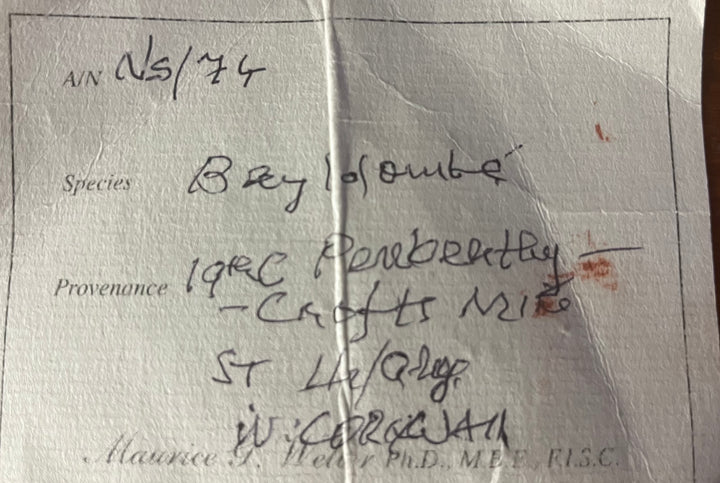 A/N NS/74
Species Bayldonite
Provenance 19thC Penberthy –
– Crofts Mine
ST Hilary
W. CORNWALL
Maurice G. Weller Ph.D., M.B.E., F.I.S.C.